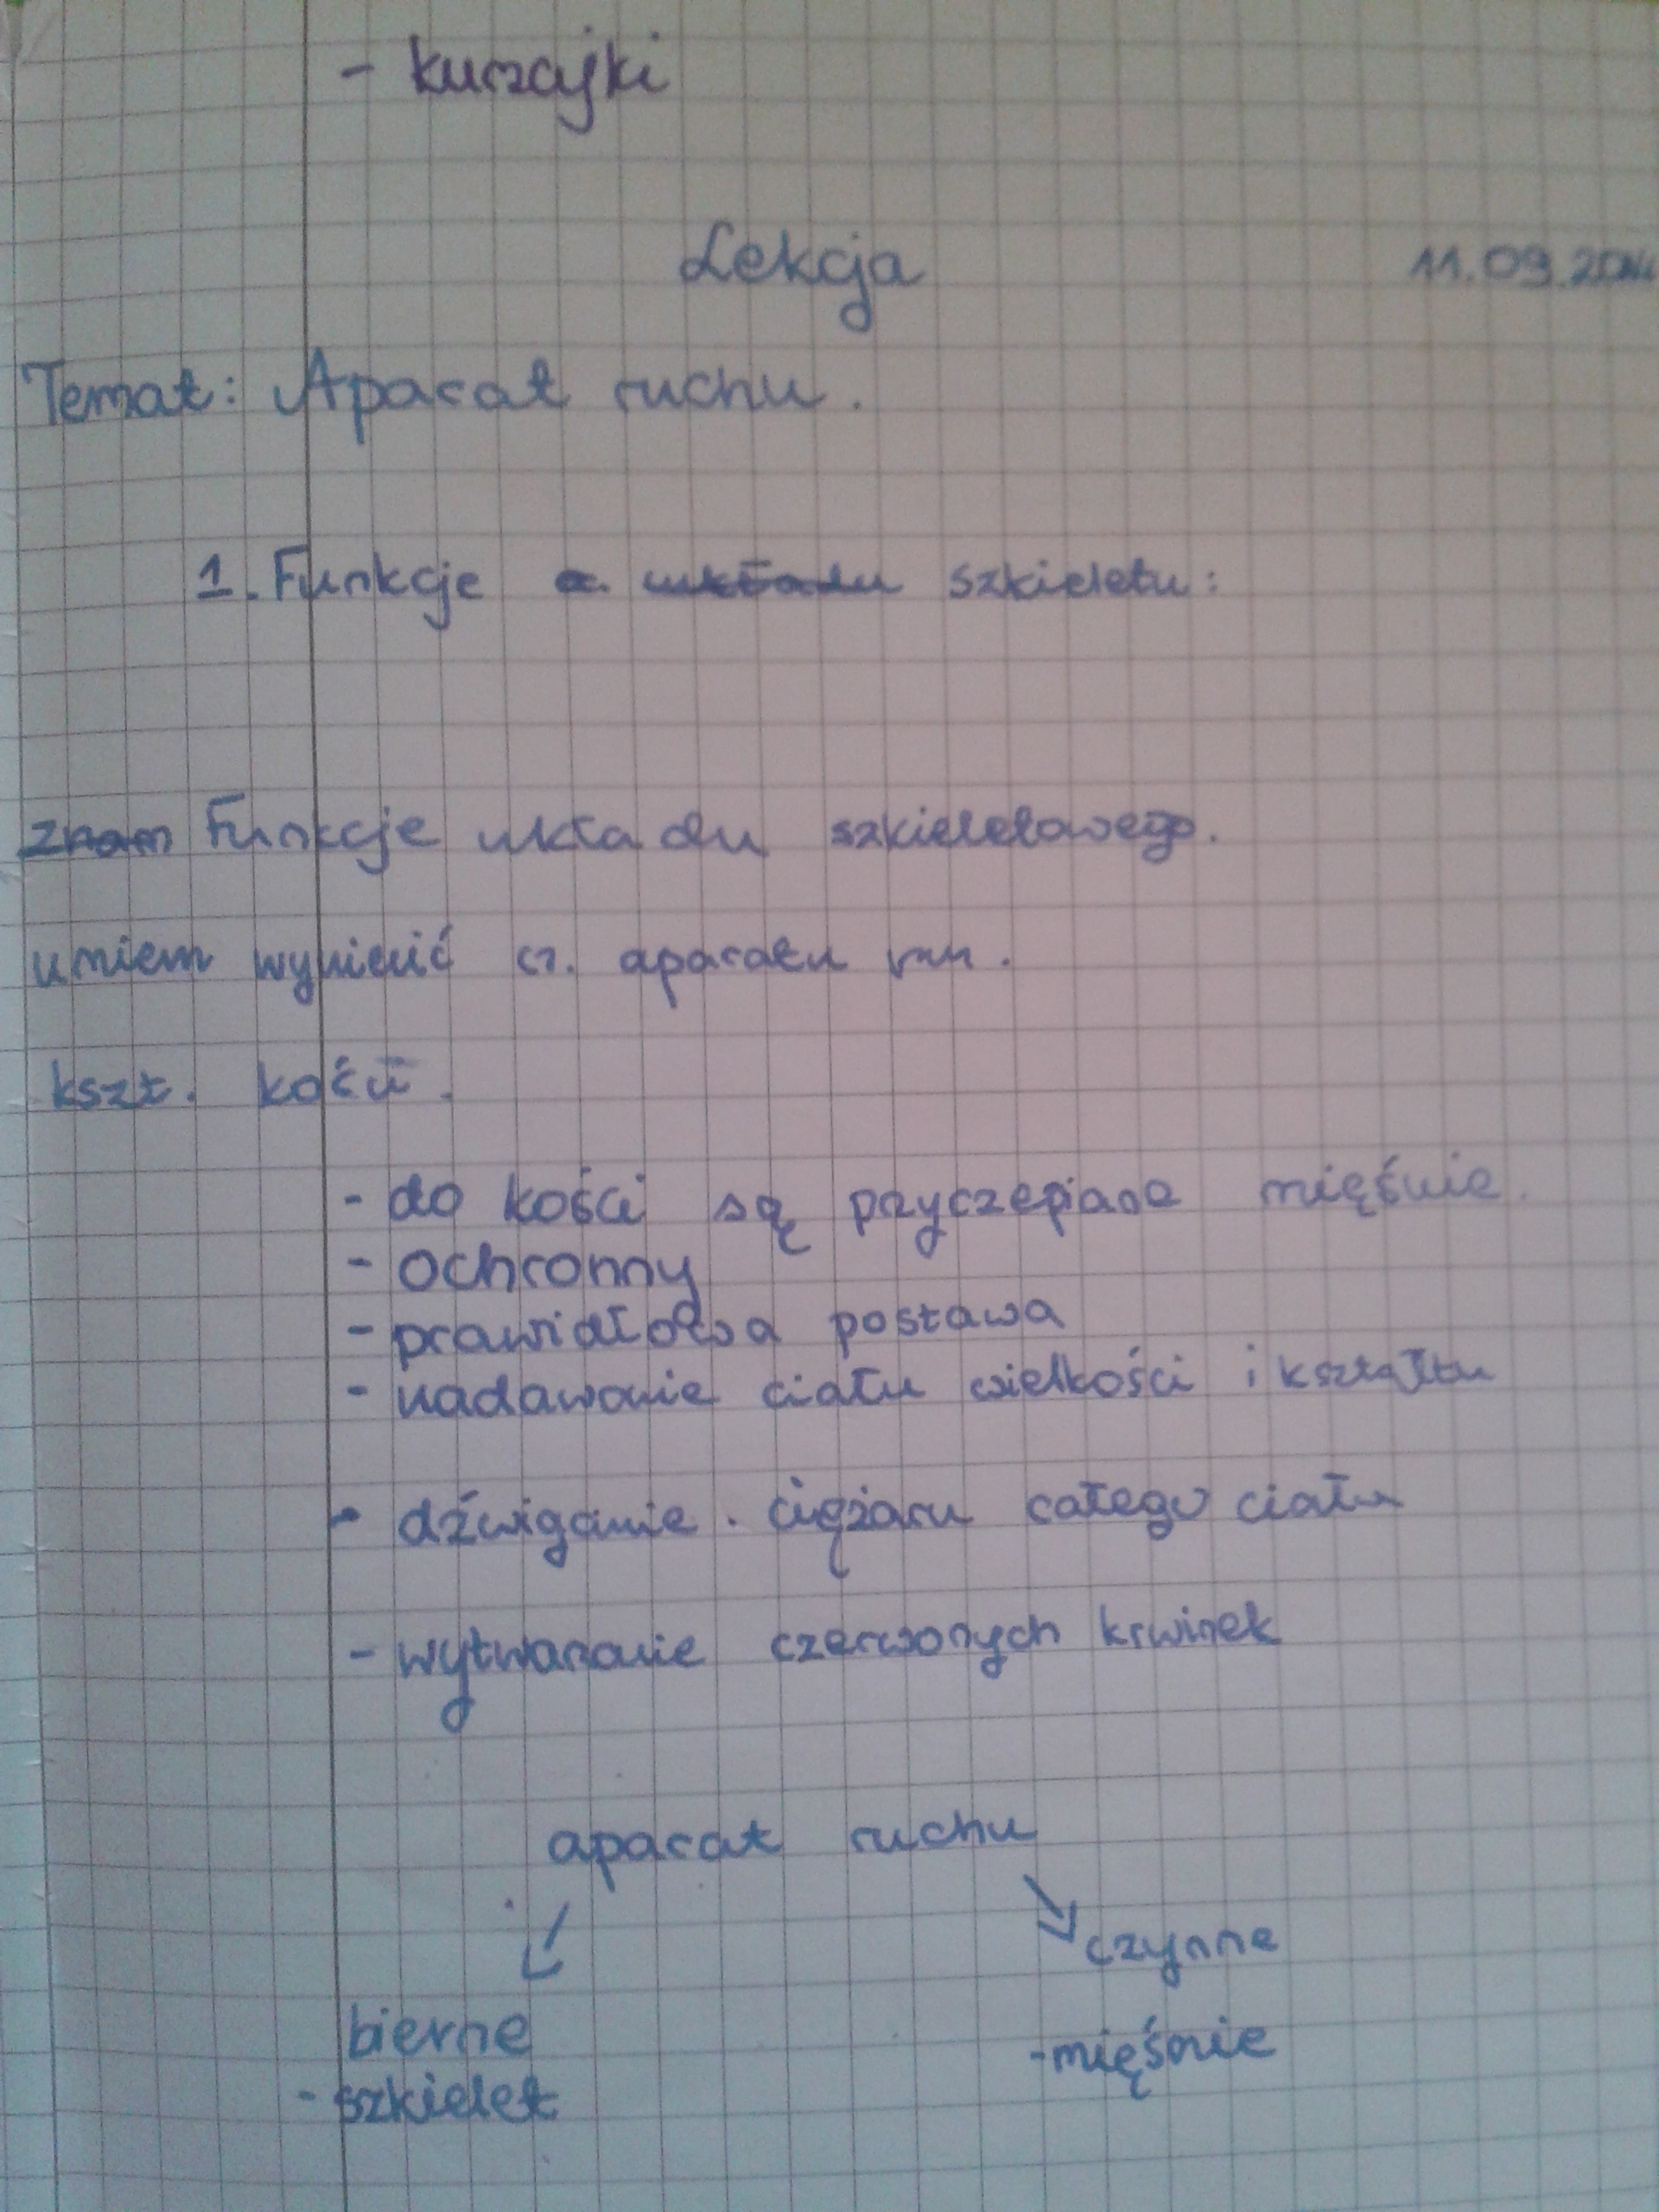 - kurzajki
Lekcja 11.09.2014
Temat: Aparat ruchu.
1. Funkcje a. układu szkieletu:
znam Funkcje układu szkieletowego.
umiem wymienić cz. aparatu
kszt. kości.
- do kości są przyczepiane mięśnie.
- ochronny
- prawidłowa postawa
- nadawanie ciału wielkości i kształtu
- dźwiganie ciężaru całego ciała
- wytwarzanie czerwonych krwinek
aparat ruchu
czynne
bierne
- mięśnie
- szkielet